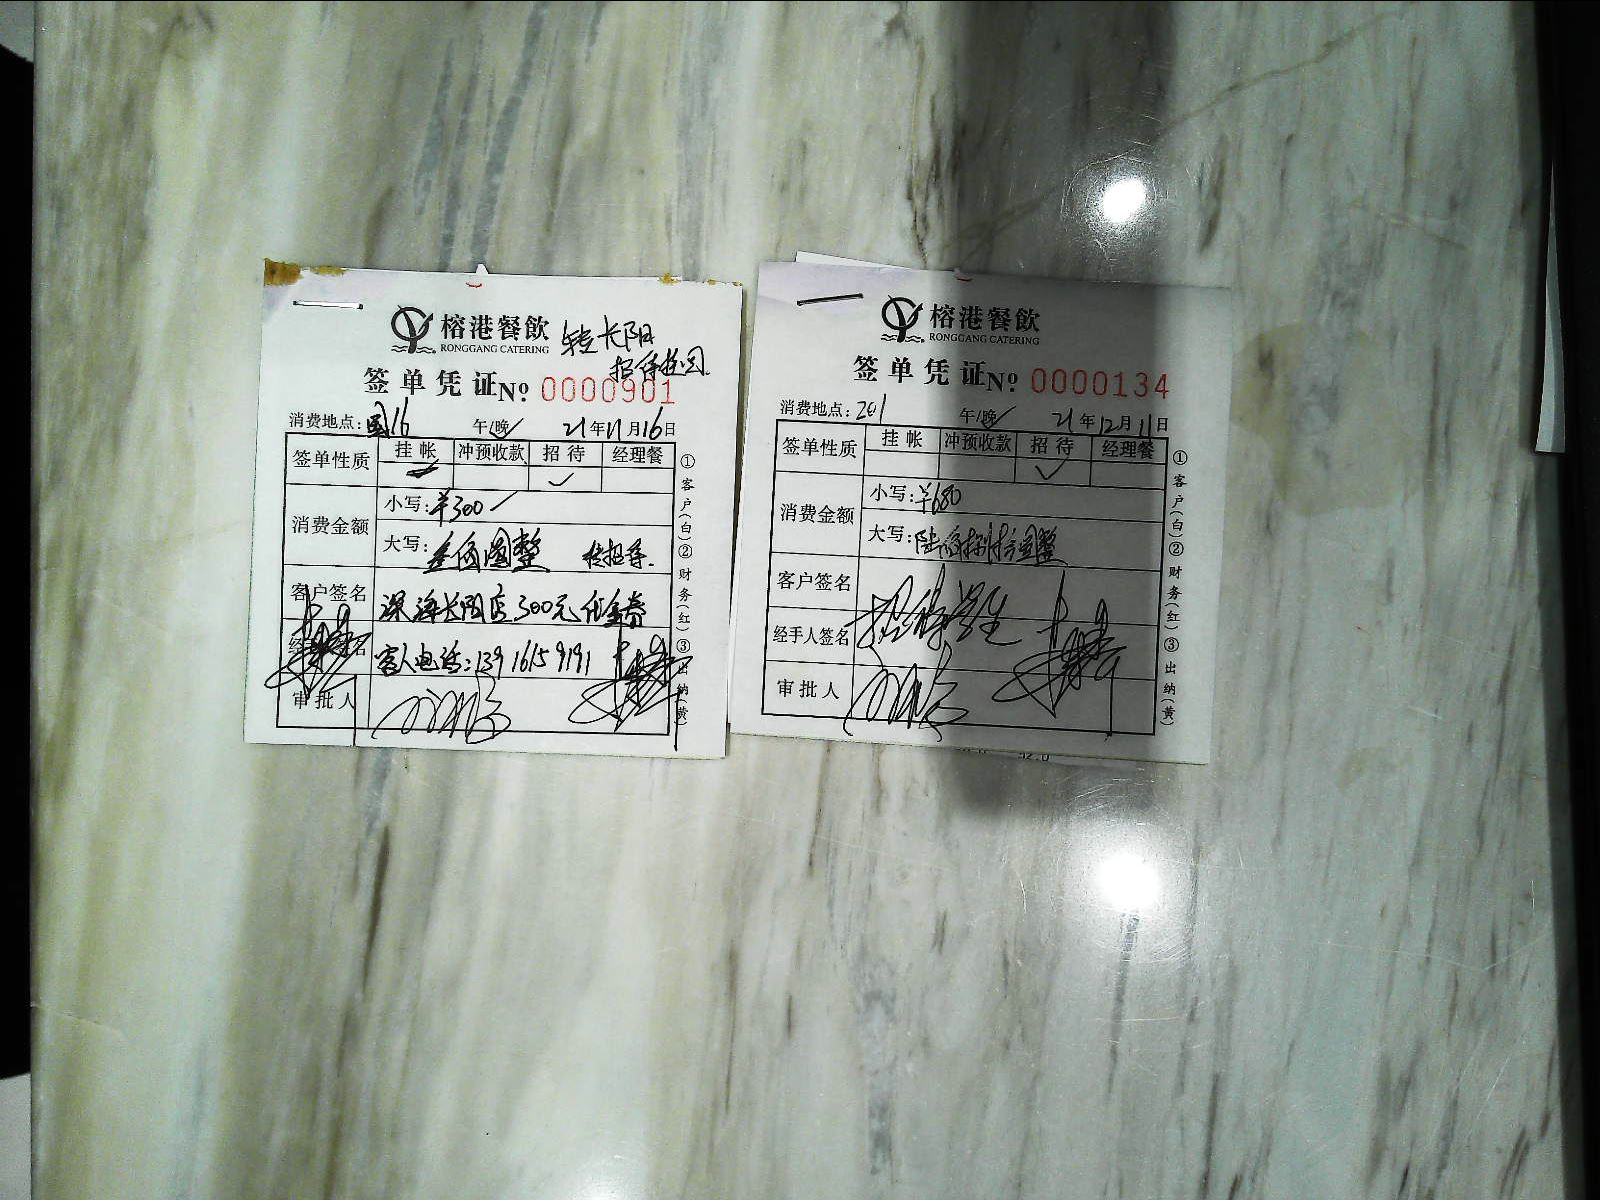 榕港餐飲
RONGGANG CATERING
转长阳
招待挂园.
签单凭证 No 0000901
消费地点: 国16 午/晚 21年11月16日
签单性质 挂帐 冲预收款 招待 经理餐
消费金额 小写: ¥300
大写: 叁佰圆整 转招待.
客户签名 深海长阳店300元代金券
客人电话: 13916159191
审批人
①客户(白)②财务(红)③出纳(黄)
榕港餐飲
RONGGANG CATERING
签单凭证 No 0000134
消费地点: 201 午/晚 21年12月11日
签单性质 挂帐 冲预收款 招待 经理餐
消费金额 小写: ¥680
大写: 陆佰捌拾圆整
客户签名
经手人签名 招待
审批人
①客户(白)②财务(红)③出纳(黄)